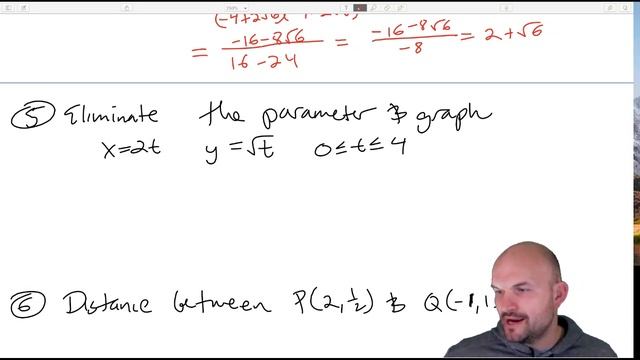 = -16-8√6 / 16-24 = -16-8√6 / -8 = 2+√6
⑤ Eliminate the parameter & graph
x=2t y=√t 0≤t≤4
⑥ Distance between P(2,½) & Q(-1,1